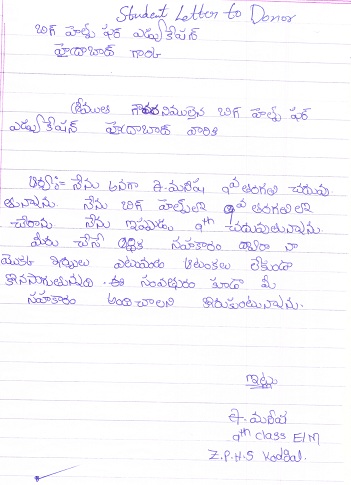 Student Letter to Donor
బిగ్ హెల్ప్ ఫర్ ఎడ్యుకేషన్
హైదాబాద్ గారికి
శ్రీయుత గౌరవనియులైన బిగ్ హెల్ప్ ఫర్
ఎడ్యుకేషన్ హైదాబాద్ వారికి
నేను అనగా ఎ. మనీష 9వ తరగతి చదువు
తున్నాను. నేను బిగ్ హెల్ప్‌లో వ తరగతిలో
చేరాను నేను ఇప్పుడు 9th చదువుతున్నాను.
మీరు చేసే ఆర్థిక సహకారం ద్వారా నా
యొక్క చదువులు ఎటువంటి ఆటంకలు లేకుండా
కొనసాగుతున్నది. ఈ సంవత్సరం కూడా మీ
సహకారం అందించాలని కోరుకుంటున్నాను.
ఇట్లు
ఎ. మనీష
9th class E/M
Z.P.H.S